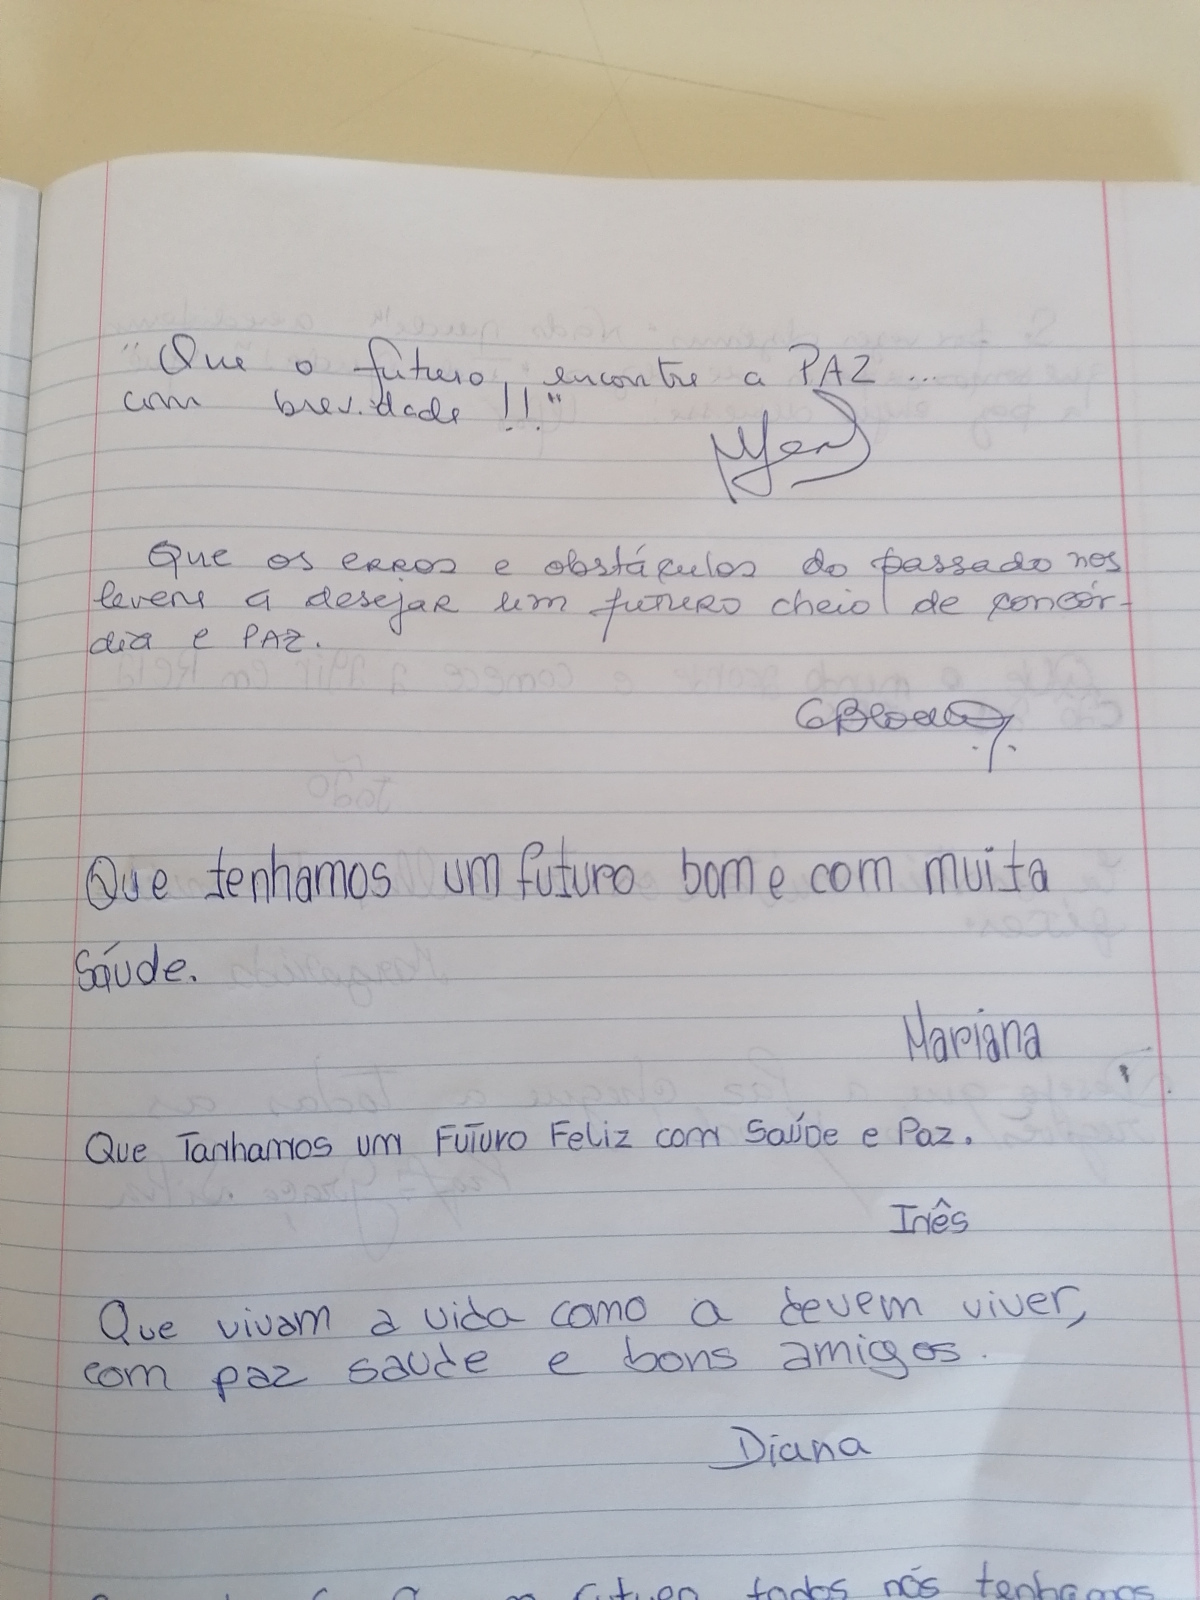 "Que o futuro, encontre a PAZ ...
com brevidade !!"
Que os erros e obstáculos do passado nos
levem a desejar um futuro cheio de concór-
dia e PAZ.
Que tenhamos um futuro bom e com muita
Saúde.
Mariana
Que Tanhamos um Futuro Feliz com Saúde e Paz.
Inês
Que vivam a vida como a devem viver,
com paz saude e bons amigos.
Diana
futuro todos nós tenhamos